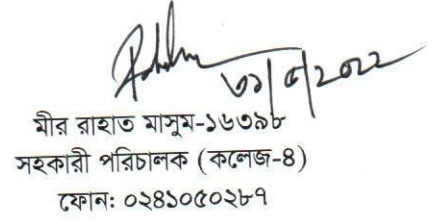 ৩১/৫/২০২২
মীর রাহাত মাসুম-১৬৩৯৮
সহকারী পরিচালক (কলেজ-৪)
ফোন: ০২৪১০৫০২৮৭